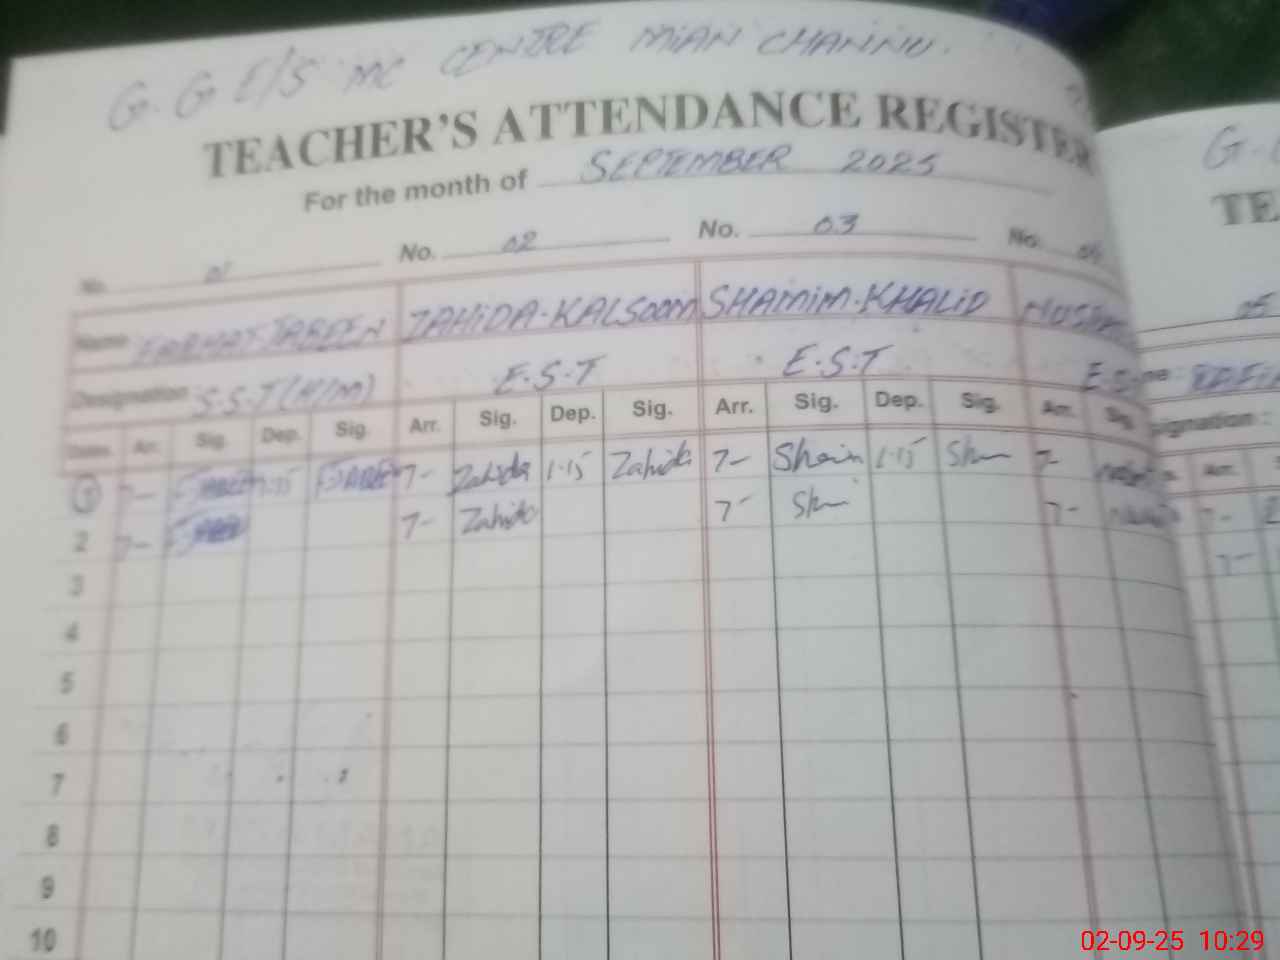 G. G E/S MC CENTRE MIAN CHANNU.
TEACHER'S ATTENDANCE REGISTER
For the month of SEPTEMBER 2025
No. 01 No. 02 No. 03 No. 04
Name ZAHIDA-KALSOOM SHAMIM-KHALID
Designation S.S.T(H/M) E.S.T E.S.T
Dates Arr. Sig. Dep. Sig. Arr. Sig. Dep. Sig. Arr. Sig. Dep. Sig. Arr. Sig.
1 7- 1-15 7- Zahida 1-15 Zahida 7- 1-15 7-
2 7- 7- Zahida 7- 7-
3
4
5
6
7
8
9
10
G.
TE
05
Arr.
7-
7-
02-09-25 10:29